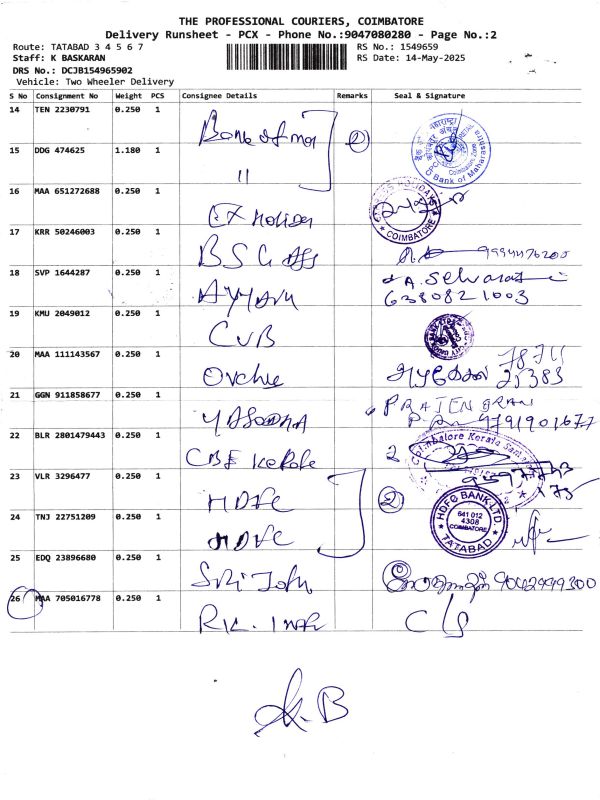 THE PROFESSIONAL COURIERS, COIMBATORE
Delivery Runsheet - PCX - Phone No.:9047080280 - Page No.:2
Route: TATABAD 3 4 5 6 7
RS No.: 1549659
Staff: K BASKARAN
RS Date: 14-May-2025
DRS No.: DCJB154965902
Vehicle: Two Wheeler Delivery
S No Consignment No Weight PCS Consignee Details Remarks Seal & Signature
14 TEN 2230791 0.250 1 Bank of (2)
15 DDG 474625 1.180 1 11 Bank of Maharashtra
16 MAA 651272688 0.250 1 Holiday COIMBATORE
17 KRR 50246003 0.250 1 BSG 9994476200
18 SVP 1644287 0.250 1 A. Selvarasi
6380821003
19 KMU 2049012 0.250 1 CUB
20 MAA 111143567 0.250 1 78711
25383
21 GGN 911858677 0.250 1 YASODHA
9791901677
22 BLR 2801479443 0.250 1 CBE Kerala 2 Coimbatore Kerala
23 VLR 3296477 0.250 1 HDFC (2)
24 TNJ 22751209 0.250 1 HDFC HDFC BANK LTD. 641 012 4308 COIMBATORE TATABAD
25 EDQ 23896680 0.250 1 Sri 9042999300
26 MAA 705016778 0.250 1 RK.